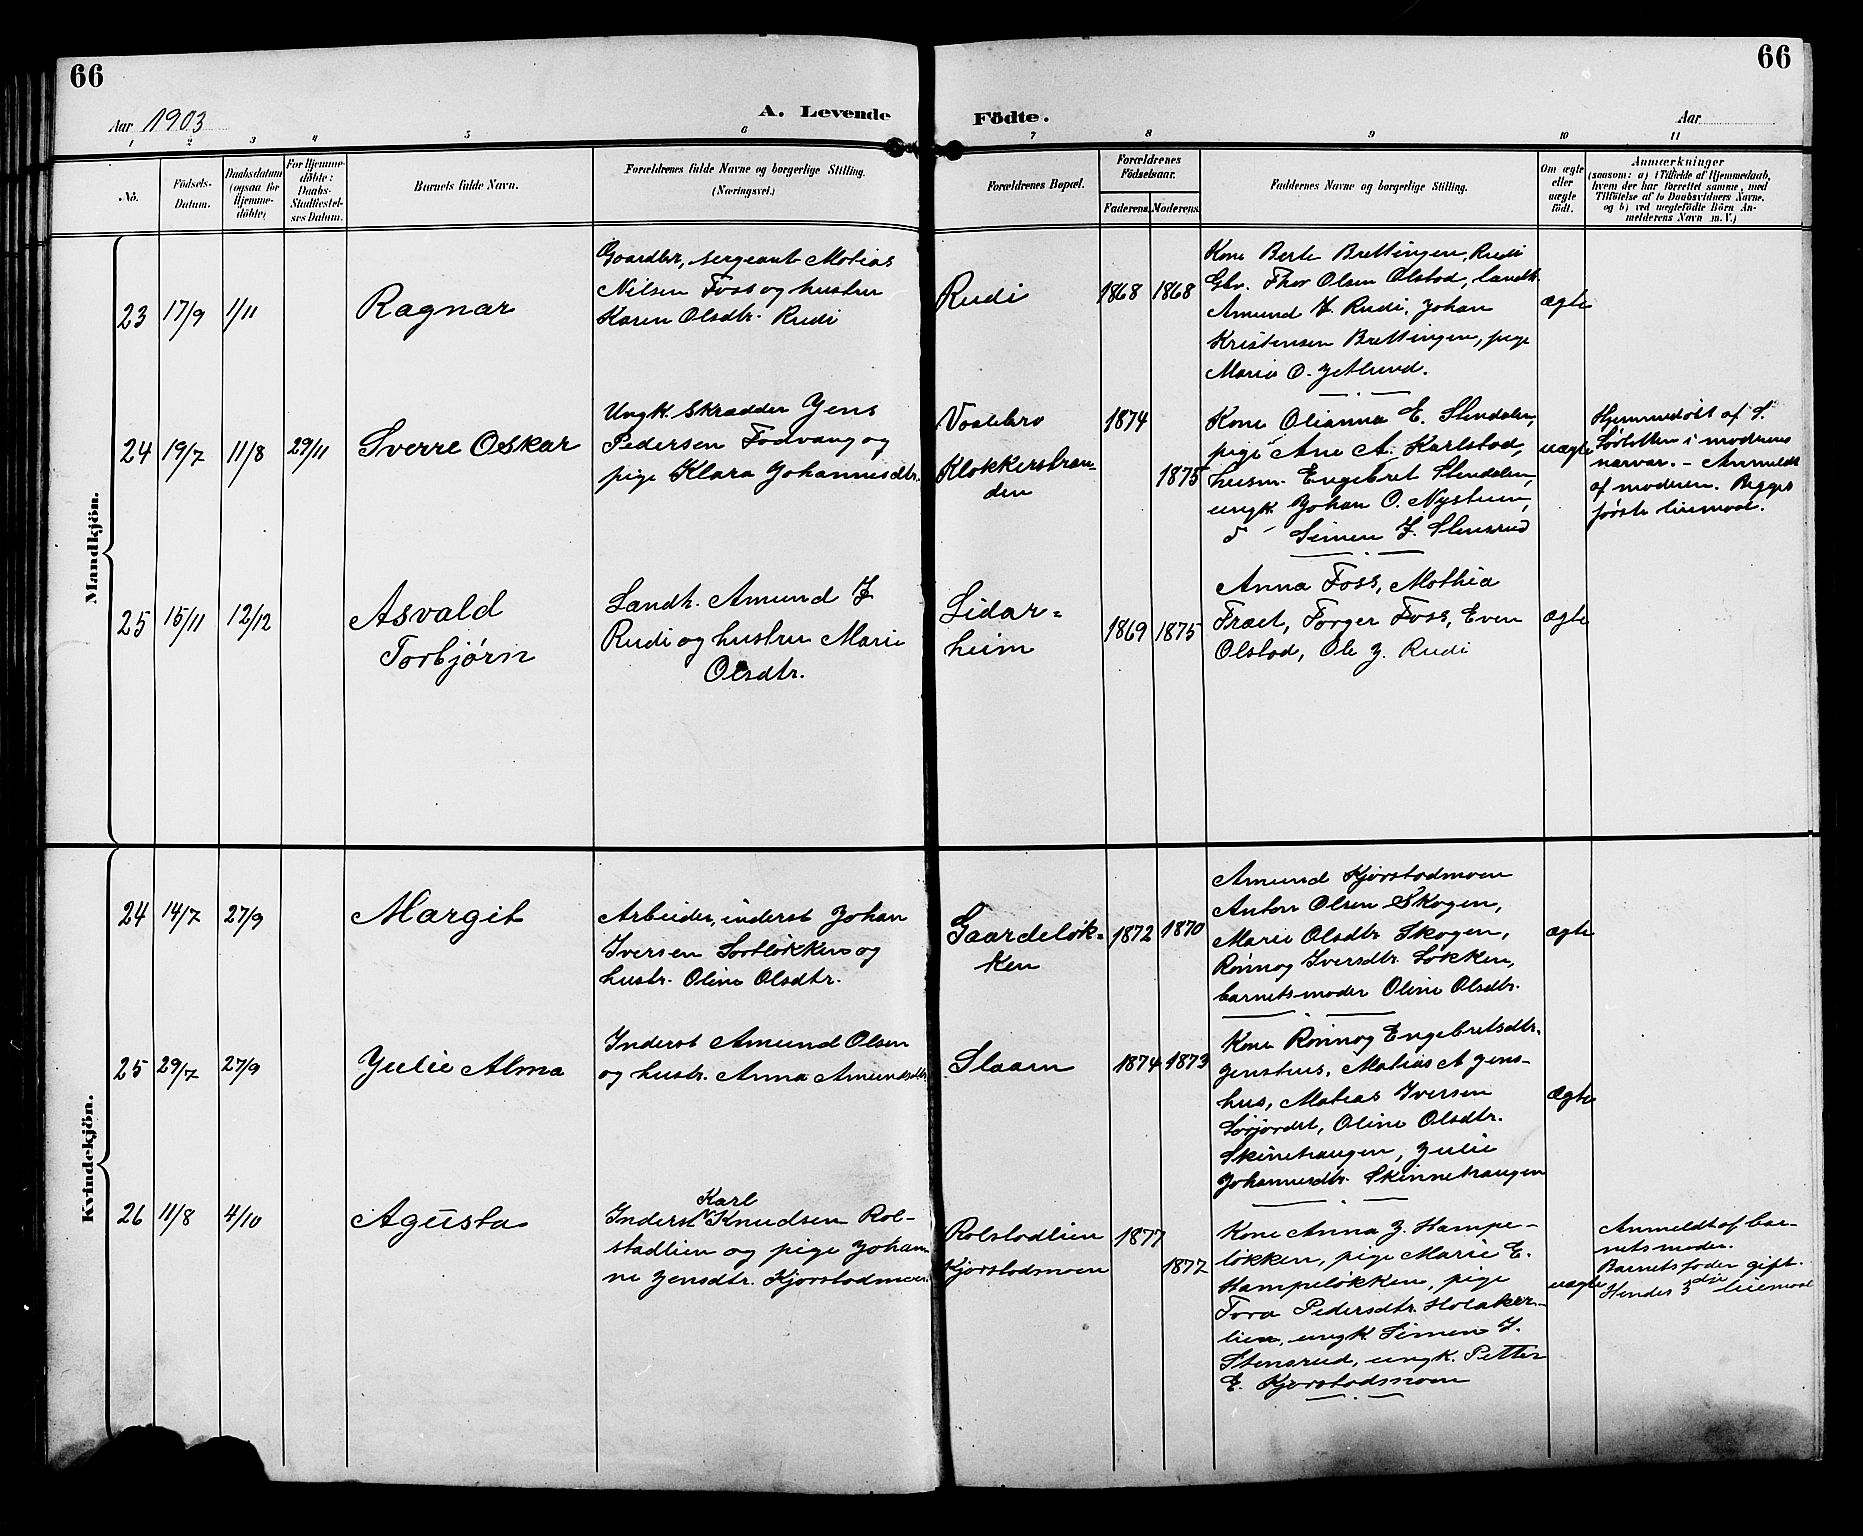 66
66
Aar 1903
A. Levende Födte.
Aar
1 2 3 4 5 6 7 8 9 10 11
No.
Födsels-Datum.
Daabsdatum (ogsaa for Hjemme-döbte)
For Hjemme-döbte: Daabs-Stadfæstel-ses Datum.
Barnets fulde Navn.
Forældrenes fulde Navne og borgerlige Stilling. (Næringsvei.)
Forældrenes Bopæl.
Forældrenes Födselsaar.
Faderens. Moderens.
Faddernes Navne og borgerlige Stilling.
Om ægte eller uægte födt.
Anmærkninger
(saasom: a) i Tilfælde af Hjemmedaab,
hvem der har forrettet samme, med
Tilföielse af to Daabsvidners Navne.
og b) ved uægtefödte Börn An-
melderens Navn m. V.)
Mandkjön.
23 17/9 1/11
Ragnar
Gaardbr, sergeant Matias
Nilsen Foss og hustru
Karen Olsdtr. Rudi
Rudi
1868 1868
Kone Berte Brettingen, Rudi
Gbr. Thor Olsen Olstad, landh.
Amund J. Rudi, Johan
Kristensen Brettingen, pige
Marie O.
ægte
24 19/7 11/8 29/11
Sverre Oskar
Ungk. skrædder Jens
Pedersen Fodvang og
pige Klara Johannesdtr.
Vaalebro
Klokkerstran-
den
1874
1875
Kone Olianna E. Slendalen,
pige Ane A. Karlstad,
husm. Engebret Slendalen,
ungk. Johan O. Nystuen,
Simen J. Stensrud
uægte
Hjemmedøbt af S.
i moderens
nærvær. - Anmeldt
af moderen. Begges
første leiemaal.
25 15/11 12/12
Asvald
Torbjørn
Landh. Amund J
Rudi og hustru Marie
Olsdtr.
Lidar-
heim
1869 1875
Anna Foss, Mathea
Fræet, Torger Foss, Even
Olstad, Ole J. Rudi
ægte
Kvindekjön.
24 14/7 27/9
Margit
Arbeider, inderst Johan
Iversen Sørløkken og
hustr. Oline Olsdtr.
Gaardeløk-
ken
1872 1870
Amund Kjorstadmoen
Anton Olsen Skogen,
Marie Olsdtr Skogen,
Rønnog Iversdtr. Løkken,
barnets moder Oline Olsdtr.
ægte
25 29/7 27/9
Julie Alma
Inderst Amund Olsen
og hustr. Anna Amundsdtr.
Slaaen
1874 1873
Kone Rønnog Engebretsdtr.
Jenshus, Matias A Jens-
hus, Matias Iversen
Sørjordet, Oline Olsdtr.
Skinnehaugen, Julie
Johannesdtr. Skinnehaugen
ægte
26 11/8 4/10
Agusta
Karl
Inderst Knudsen Rol-
stadlien og pige Johan-
ne Jensdtr. Kjorstadmoen
Rolstadlien
Kjorstadmoen
1877
1872
Kone Anna J. Hampe-
løkken, pige Marie E.
Hampeløkken, pige
Tora Pedersdtr. Holaker-
lien, ungk. Simen J.
Stensrud, ungk. Petter
E. Kjorstadsmoen
uægte
Anmeldt af bar-
nets moder.
Barnets fader gift.
Hendes 3die leiemaal